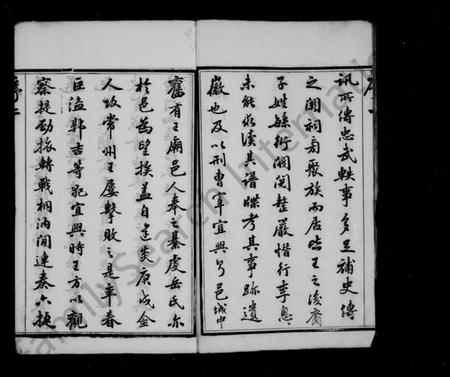 訊所傳忠武軼事多足補史傳
之闕祠旁聚族而居皆王之後裔
子姓繇衍閥閱整嚴惜行李怱
未能求溪其譜牒考其事跡遺
徽也及以刑曹宰宜興見邑城中
舊有王廟邑人奉之綦虔岳氏亦
於邑為望族蓋自建炎庚戌金
人攻常州王屢擊敗之是年春
巨盜郭吉等犯宜興時王方以觀
察提勁旅轉戰桐汭間連奏六捷
FamilySearch International